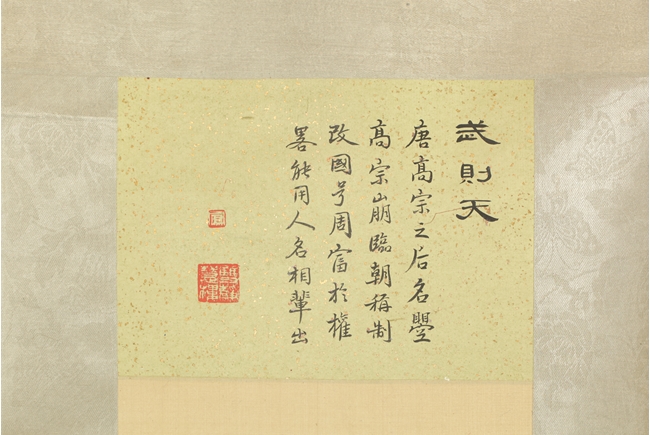 武則天
唐高宗之后名曌
高宗崩臨朝稱制
改國号周富於權
畧能用人名相輩出